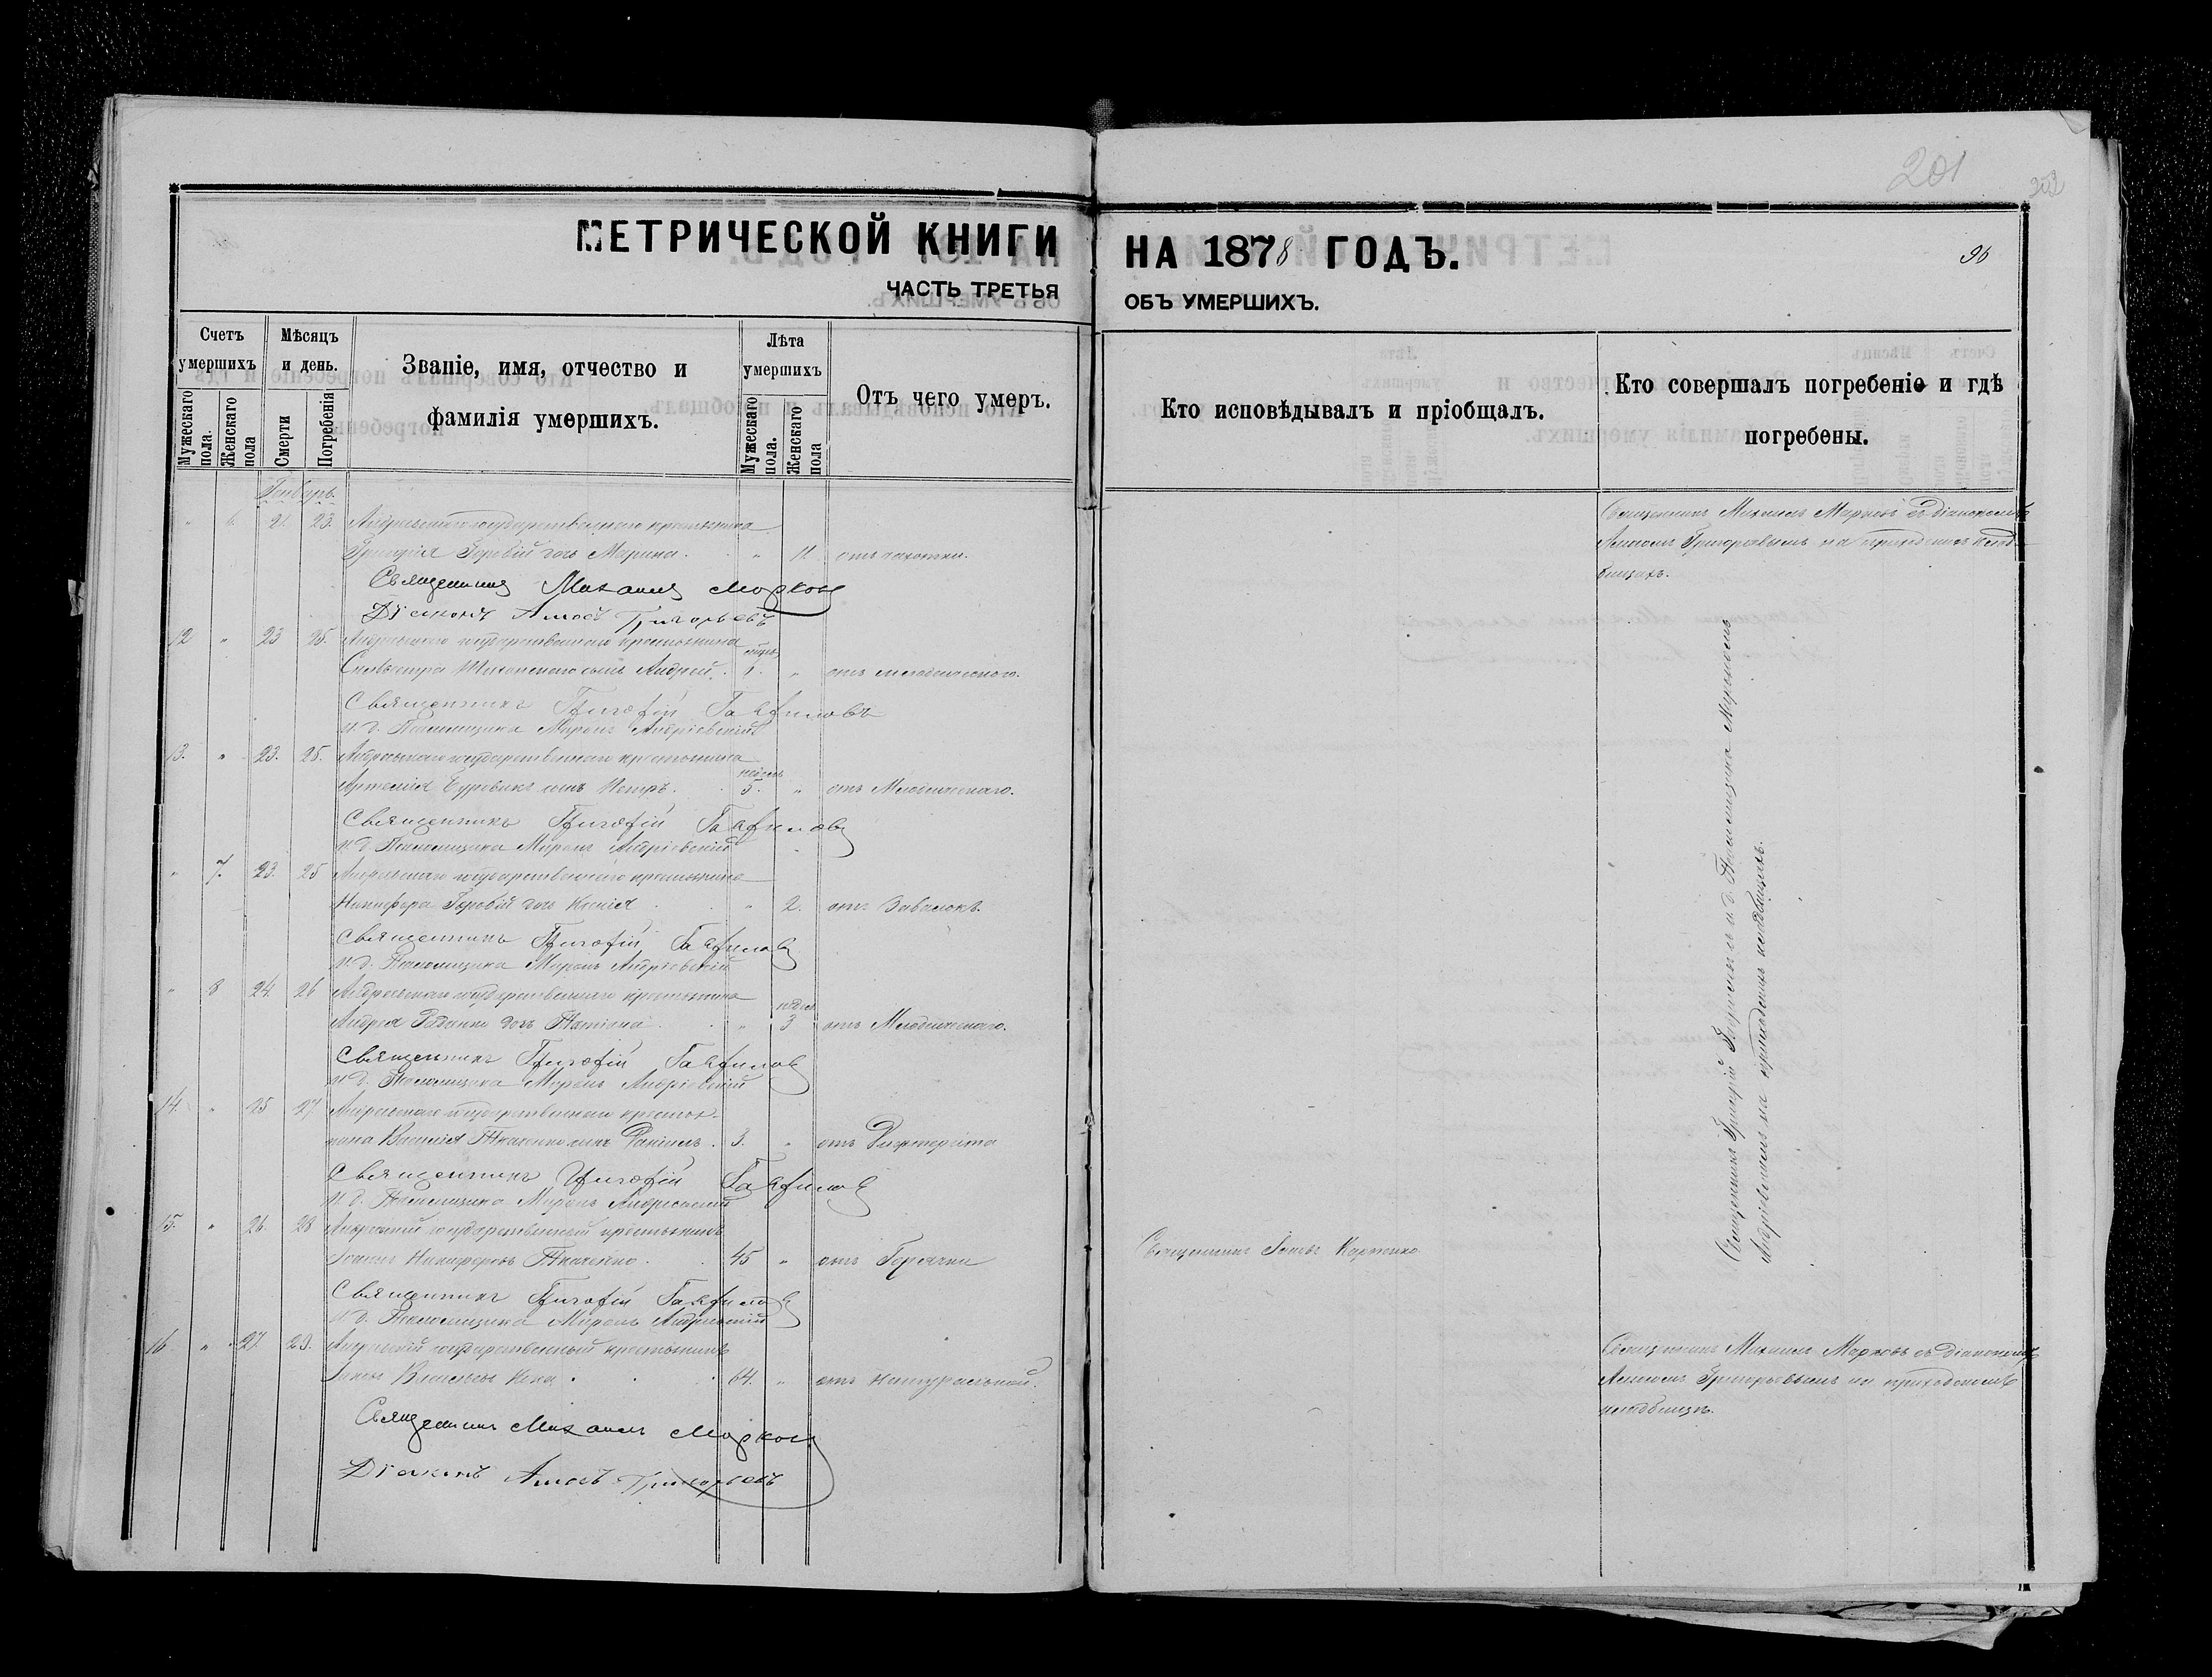 201
202
МЕТРИЧЕСКОЙ КНИГИ НА 1878 ГОДЪ.
96
ЧАСТЬ ТРЕТЬЯ ОБЪ УМЕРШИХЪ.
Счетъ умершихъ
Мужескаго пола.
Женскаго пола
Мѣсяцъ и день.
Смерти
Погребенія
Званіе, имя, отчество и фамилія умершихъ.
Лѣта умершихъ
Мужескаго пола.
Женскаго пола
Отъ чего умеръ.
Кто исповѣдывалъ и пріобщалъ.
Кто совершалъ погребеніе и гдѣ погребены.
Январь.
" 6. 21. 23. государственнаго крестьянина
Григорія дочь Марина. " 11 отъ чахотки.
Священникъ Михаилъ Марковъ съ діакономъ
Амосомъ Григорьевымъ на приходскихъ клад-
бищахъ.
Священникъ Михаилъ Марковъ
Діаконъ Амосъ Григорьевъ
12 " 23 25. государственнаго крестьянина
Сильвестра сынъ Андрей. 1. " отъ младенческаго.
Священникъ Григорій Гавриловъ
И. д. Псаломщика Миронъ Андріевскій
13. " 23. 25. государственнаго крестьянина
Артемія сынъ Петръ. недель 5. " отъ Младенческаго.
Священникъ Григорій Гавриловъ
И. д. Псаломщика Миронъ Андріевскій
" 7. 23. 25 государственнаго крестьянина
Никифора дочь Ксенія " 2. отъ Завалокъ.
Священникъ Григорій Гавриловъ
И. д. Псаломщика Миронъ Андріевскій
" 8 24. 26 государственнаго крестьянина
Андрея дочь Татіана. " недель 3 отъ Младенческаго.
Священникъ Григорій Гавриловъ
И. д. Псаломщика Миронъ Андріевскій
14. " 25 27 государственнаго крестья-
нина Василія Ткаченко сынъ Даніилъ. 3. " отъ Дифтерита
Священникъ Григорій Гавриловъ
И. д. Псаломщика Миронъ Андріевскій
15. " 26. 28 государственный крестьянинъ
Іоаннъ Никифоровъ Ткаченко. 45 " отъ Горячки
Священникъ
Священникъ Григорій Гавриловъ
И. д. Псаломщика Миронъ Андріевскій
Священникъ Григорій Гавриловъ и и. д. Псаломщика Мирономъ
Андріевскимъ на приходскихъ кладбищахъ.
16 " 27. 29. государственный крестьянинъ
Васильевъ 64. " отъ натуральной.
Священникъ Михаилъ Марковъ съ діакономъ
Амосомъ Григорьевымъ на приходскомъ
кладбищѣ.
Священникъ Михаилъ Марковъ
Діаконъ Амосъ Григорьевъ